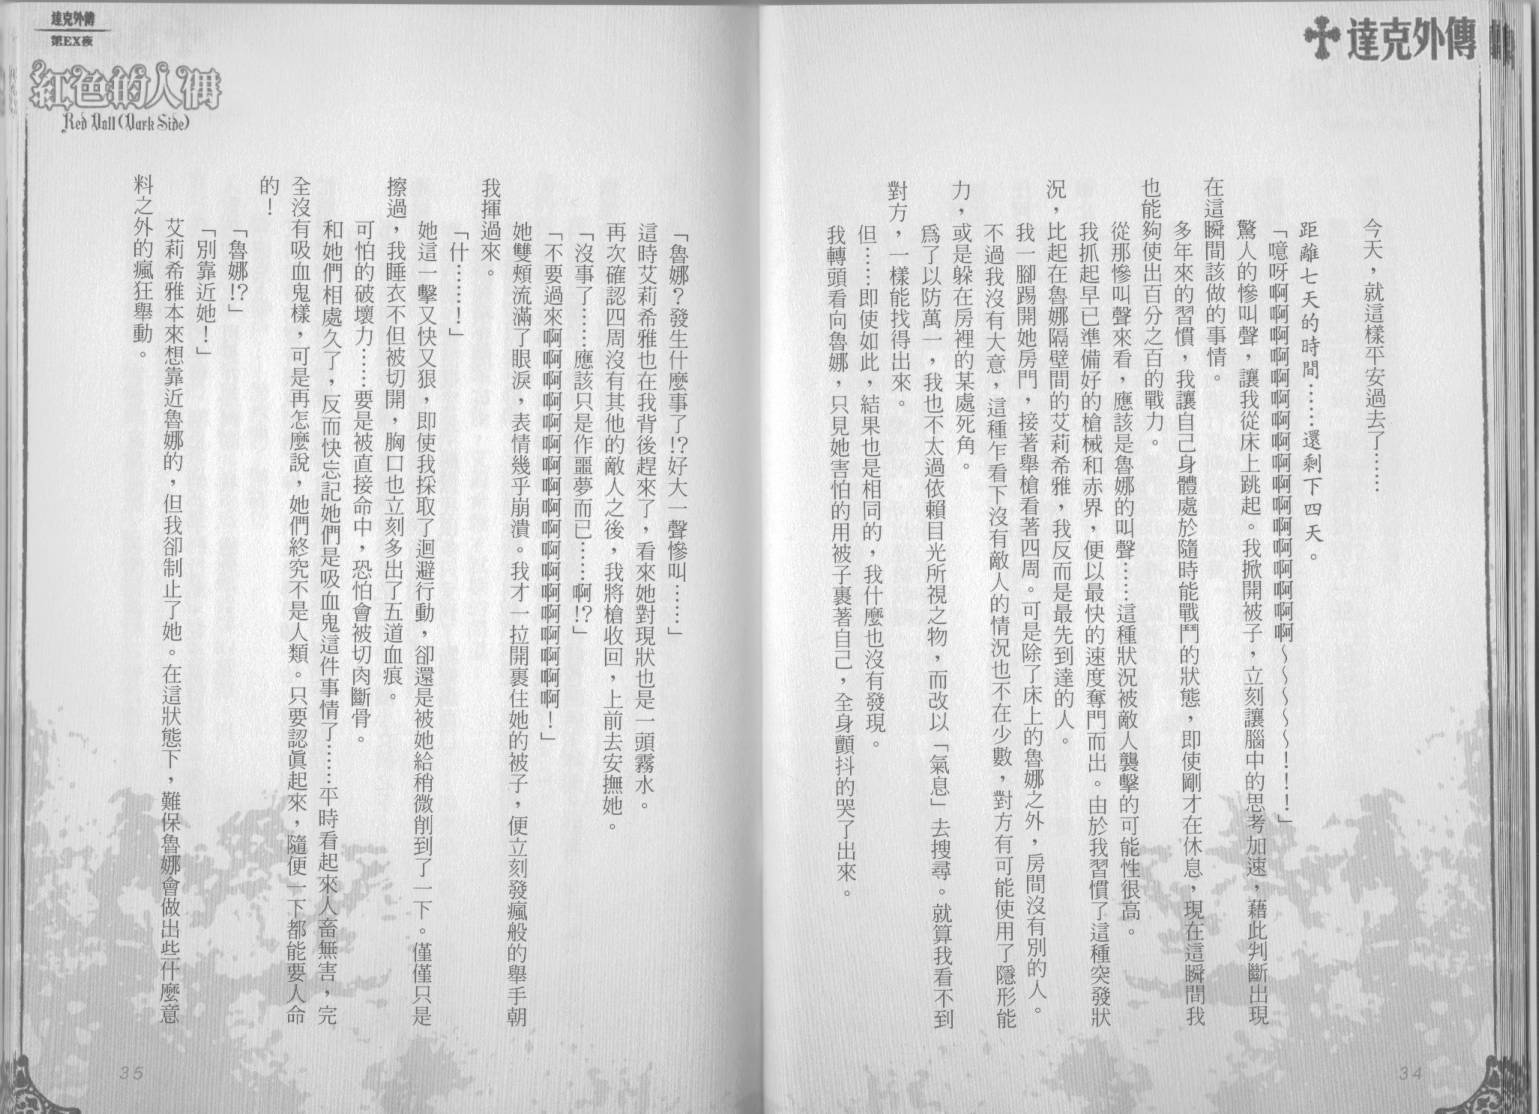 達克外傳
今天，就這樣平安過去了……
距離七天的時間……還剩下四天。
「噫呀啊啊啊啊啊啊啊啊啊啊啊啊啊啊啊啊～～～～～！！！」
驚人的慘叫聲，讓我從床上跳起。我掀開被子，立刻讓腦中的思考加速，藉此判斷出現
在這瞬間該做的事情。
多年來的習慣，我讓自己身體處於隨時能戰鬥的狀態，即使剛才在休息，現在這瞬間我
也能夠使出百分之百的戰力。
從那慘叫聲來看，應該是魯娜的叫聲……這種狀況被敵人襲擊的可能性很高。
我抓起早已準備好的槍械和赤界，便以最快的速度奪門而出。由於我習慣了這種突發狀
況，比起在魯娜隔壁間的艾莉希雅，我反而是最先到達的人。
我一腳踢開她房門，接著舉槍看著四周。可是除了床上的魯娜之外，房間沒有別的人。
不過我沒有大意，這種乍看下沒有敵人的情況也不在少數，對方有可能使用了隱形能
力，或是躲在房裡的某處死角。
為了以防萬一，我也不太過依賴目光所視之物，而改以「氣息」去搜尋。就算我看不到
對方，一樣能找得出來。
但……即使如此，結果也是相同的，我什麼也沒有發現。
我轉頭看向魯娜，只見她害怕的用被子裹著自己，全身顫抖的哭了出來。
34
達克外傳
第EX夜
紅色的人偶
Red Doll(Dark Side)
「魯娜？發生什麼事了!?好大一聲慘叫……」
這時艾莉希雅也在我背後趕來了，看來她對現狀也是一頭霧水。
再次確認四周沒有其他的敵人之後，我將槍收回，上前去安撫她。
「沒事了……應該只是作噩夢而已……啊!?」
「不要過來啊啊啊啊啊啊啊啊啊啊啊啊啊啊啊啊啊啊！」
她雙頰流滿了眼淚，表情幾乎崩潰。我才一拉開裹住她的被子，便立刻發瘋般的舉手朝
我揮過來。
「什………！」
她這一擊又快又狠，即使我採取了迴避行動，卻還是被她給稍微削到了一下。僅僅只是
擦過，我睡衣不但被切開，胸口也立刻多出了五道血痕。
可怕的破壞力……要是被直接命中，恐怕會被切肉斷骨。
和她們相處久了，反而快忘記她們是吸血鬼這件事情了……平時看起來人畜無害，完
全沒有吸血鬼樣，可是再怎麼說，她們終究不是人類。只要認真起來，隨便一下都能要人命
的！
「魯娜!?」
「別靠近她！」
艾莉希雅本來想靠近魯娜的，但我卻制止了她。在這狀態下，難保魯娜會做出些什麼意
料之外的瘋狂舉動。
35